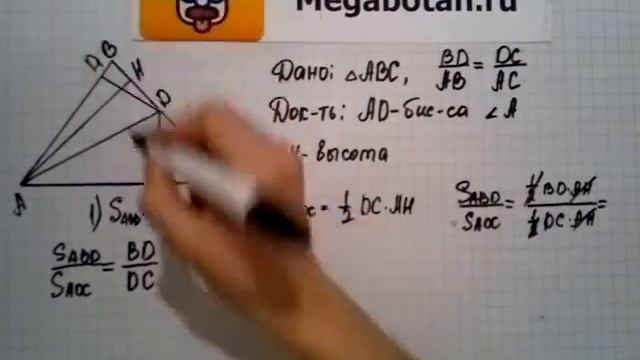 Megabotan.ru
D B
H
D
A
Дано: △ABC, BD/AB = DC/AC
Док-ть: AD-бис-са ∠A
-высота
1) S
= 1/2 DC·AH
S ABD / S ADC = 1/2 BD·AH / 1/2 DC·AH =
S ABD / S ADC = BD / DC